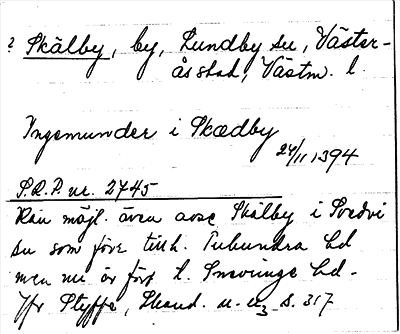 ? Skälby, by, Lundby sn, Väster-
ås stad, Västm. l.
Yngemunder i Skædby
24/11 1394
S.R.P. nr. 2745
Kan möjl. även avse Skälby i
sn som förr tillh. Tubundra hd
men nu är förs t. Snevringe hd.
Jfr Styffe, Skand. u. u3 s. 317